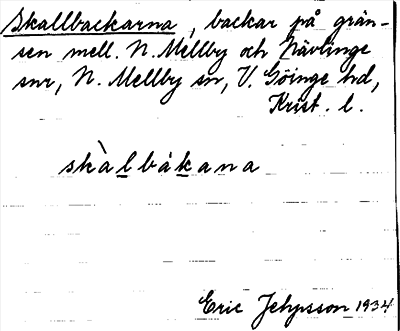 Skallbackarna, backar på grän-
sen mell. N. Mellby och Nävlinge
snr, N. Mellby sn, V. Göinge hd,
Krist. l.
skàlbákana
Eric 1934